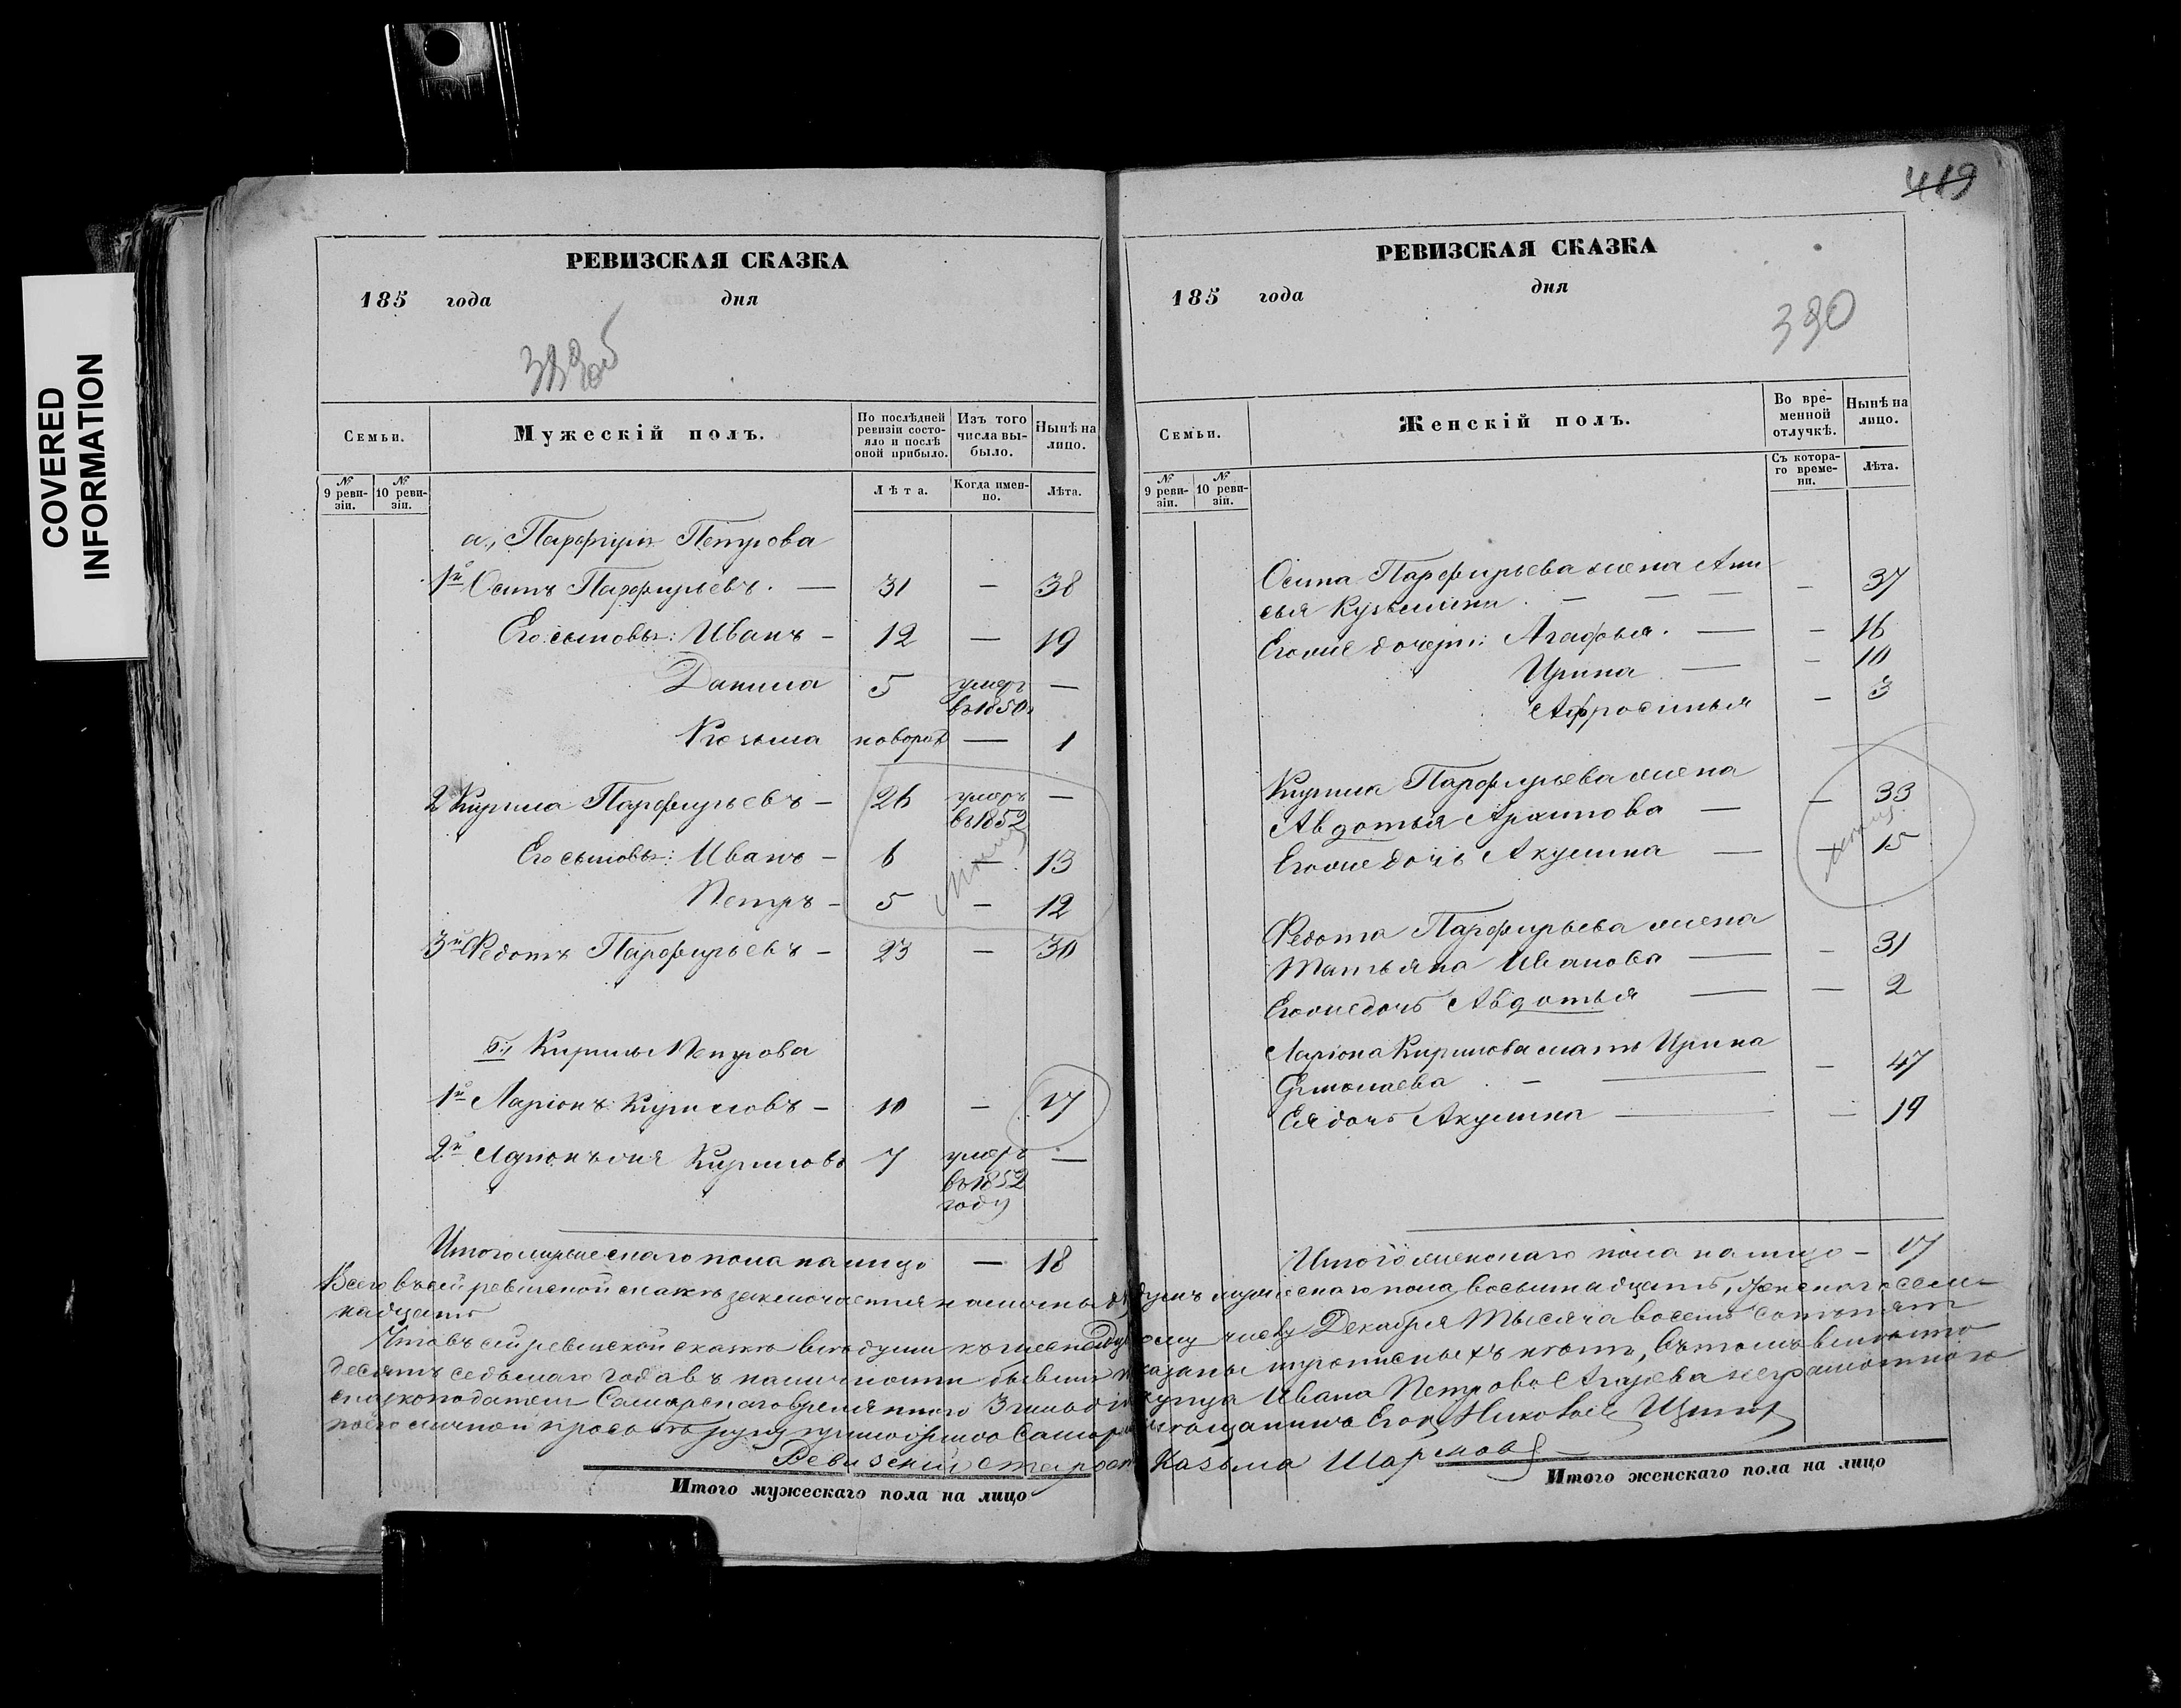 COVERED
INFORMATION
РЕВИЗСКАЯ СКАЗКА
185 года дня
Семьи.
Мужескій полъ.
По послѣдней ревизіи состояло и послѣ оной прибыло.
Изъ того числа выбыло.
Нынѣ на лицо.
№ 9 ревизіи.
№ 10 ревизіи.
Лѣта.
Когда именно.
Лѣта.
а., Парфирія Петрова
1й Осипъ Парфирьевъ. — 31 — 38
Его сыновья: Иванъ — 12 — 19
Данила 5 умеръ въ 1850г —
Козьма новорож — 1
2 Кирила Парфирьевъ — 26 умеръ въ 1852 —
Его сыновья: Иванъ — 6 — 13
Петръ — 5 — 12
3й Федотъ Парфирьевъ — 23 — 30
б., Кирилы Петрова
1й Ларіонъ Кириловъ — 10 — 17
2й Кириловъ 7 умеръ въ 1852 году —
Итого мужескаго пола на лицо — 18
419
РЕВИЗСКАЯ СКАЗКА
185 года дня
390
Семьи.
Женскій полъ.
Во временной отлучкѣ.
Нынѣ на лицо.
№ 9 ревизіи.
№ 10 ревизіи.
Съ котораго времени.
Лѣта.
Осипа Парфирьева жена Ани
сья Кузьмина. — — — — 37
Егоже дочери: Агафья. — — 16
Ирина — — 10
Афросинья — 3
Кирила Парфирьева жена
Авдотья Архипова — — 33
Егоже дочь Акулина — — 15
Федота Парфирьева жена
Татьяна Иванова — — 31
Егоже дочь Авдотья — — 2
Ларіона Кирилова мать Ирина
Ермолаева — — — 47
Ея дочь Акулина — — 19
Итого женскаго пола на лицо — 17
Всего въ сей ревизской сказкѣ заключается наличныхъ душъ мужескаго пола восьмнадцать, женскаго сем-
надцать
Что въ сей ревизской сказкѣ всѣ души къ числу Декабря Тысяча восемь сотъ пять
десятъ седьмаго года въ наличности бывшія показаны и прописныхъ нѣтъ, въ томъ вмѣсто
сказкоподателя Самарскаго временнаго 3 гильдіи купца Ивана Петрова неграмотнаго
по его личной прозьбѣ руку приложилъ Самарскій мещанинъ Егоръ Николаевъ
Ревизскій староста Казьма
Итого мужескаго пола на лицо
Итого женскаго пола на лицо